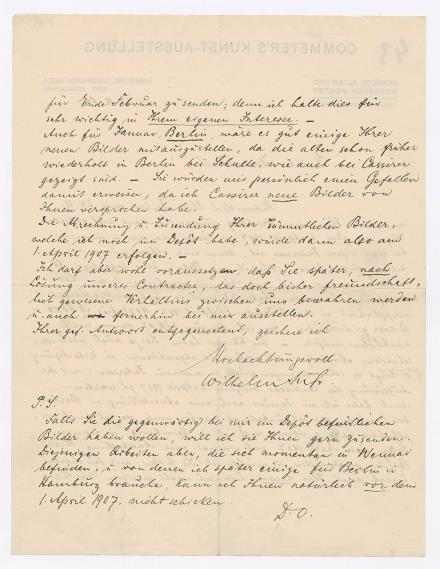 für Ende Februar zu senden, denn ich halte dies für
sehr wichtig in Ihrem eigenen Interesse. —
Auch für Januar, Berlin, wäre es gut einige Ihrer
neuen Bilder mitauszustellen, da die alten schon früher
wiederholt in Berlin bei Schulte, wie auch bei Cassirer
gezeigt sind. — Sie würden mir persönlich einen Gefallen
damit erweisen, da ich Cassirer neue Bilder von
Ihnen versprochen habe.
Die Abrechnung u. Zusendung Ihrer sämmtlichen Bilder,
welche ich noch im Depôt habe, würde dann also am
1. April 1907 erfolgen. —
Ich darf aber wohl voraussetzen, daß Sie später, nach
Lösung unseres Contractes, das doch bisher freundschaft-
lich gewesene Verhältnis zwischen uns bewahren werden
u. auch fernerhin bei mir ausstellen.
Ihrer gef. Antwort entgegensehend, zeichne ich
Hochachtungsvoll
Wilhelm Suhr.
P. S.
Falls Sie die gegenwärtig bei mir im Depôt befindlichen
Bilder haben wollen, will ich sie Ihnen gern zusenden.
Diejenigen Arbeiten aber, die sich momentan in Weimar
befinden, u. von denen ich später einige für Berlin u.
Hamburg brauche, kann ich Ihnen natürlich vor dem
1. April 1907. nicht schicken.
D. O.